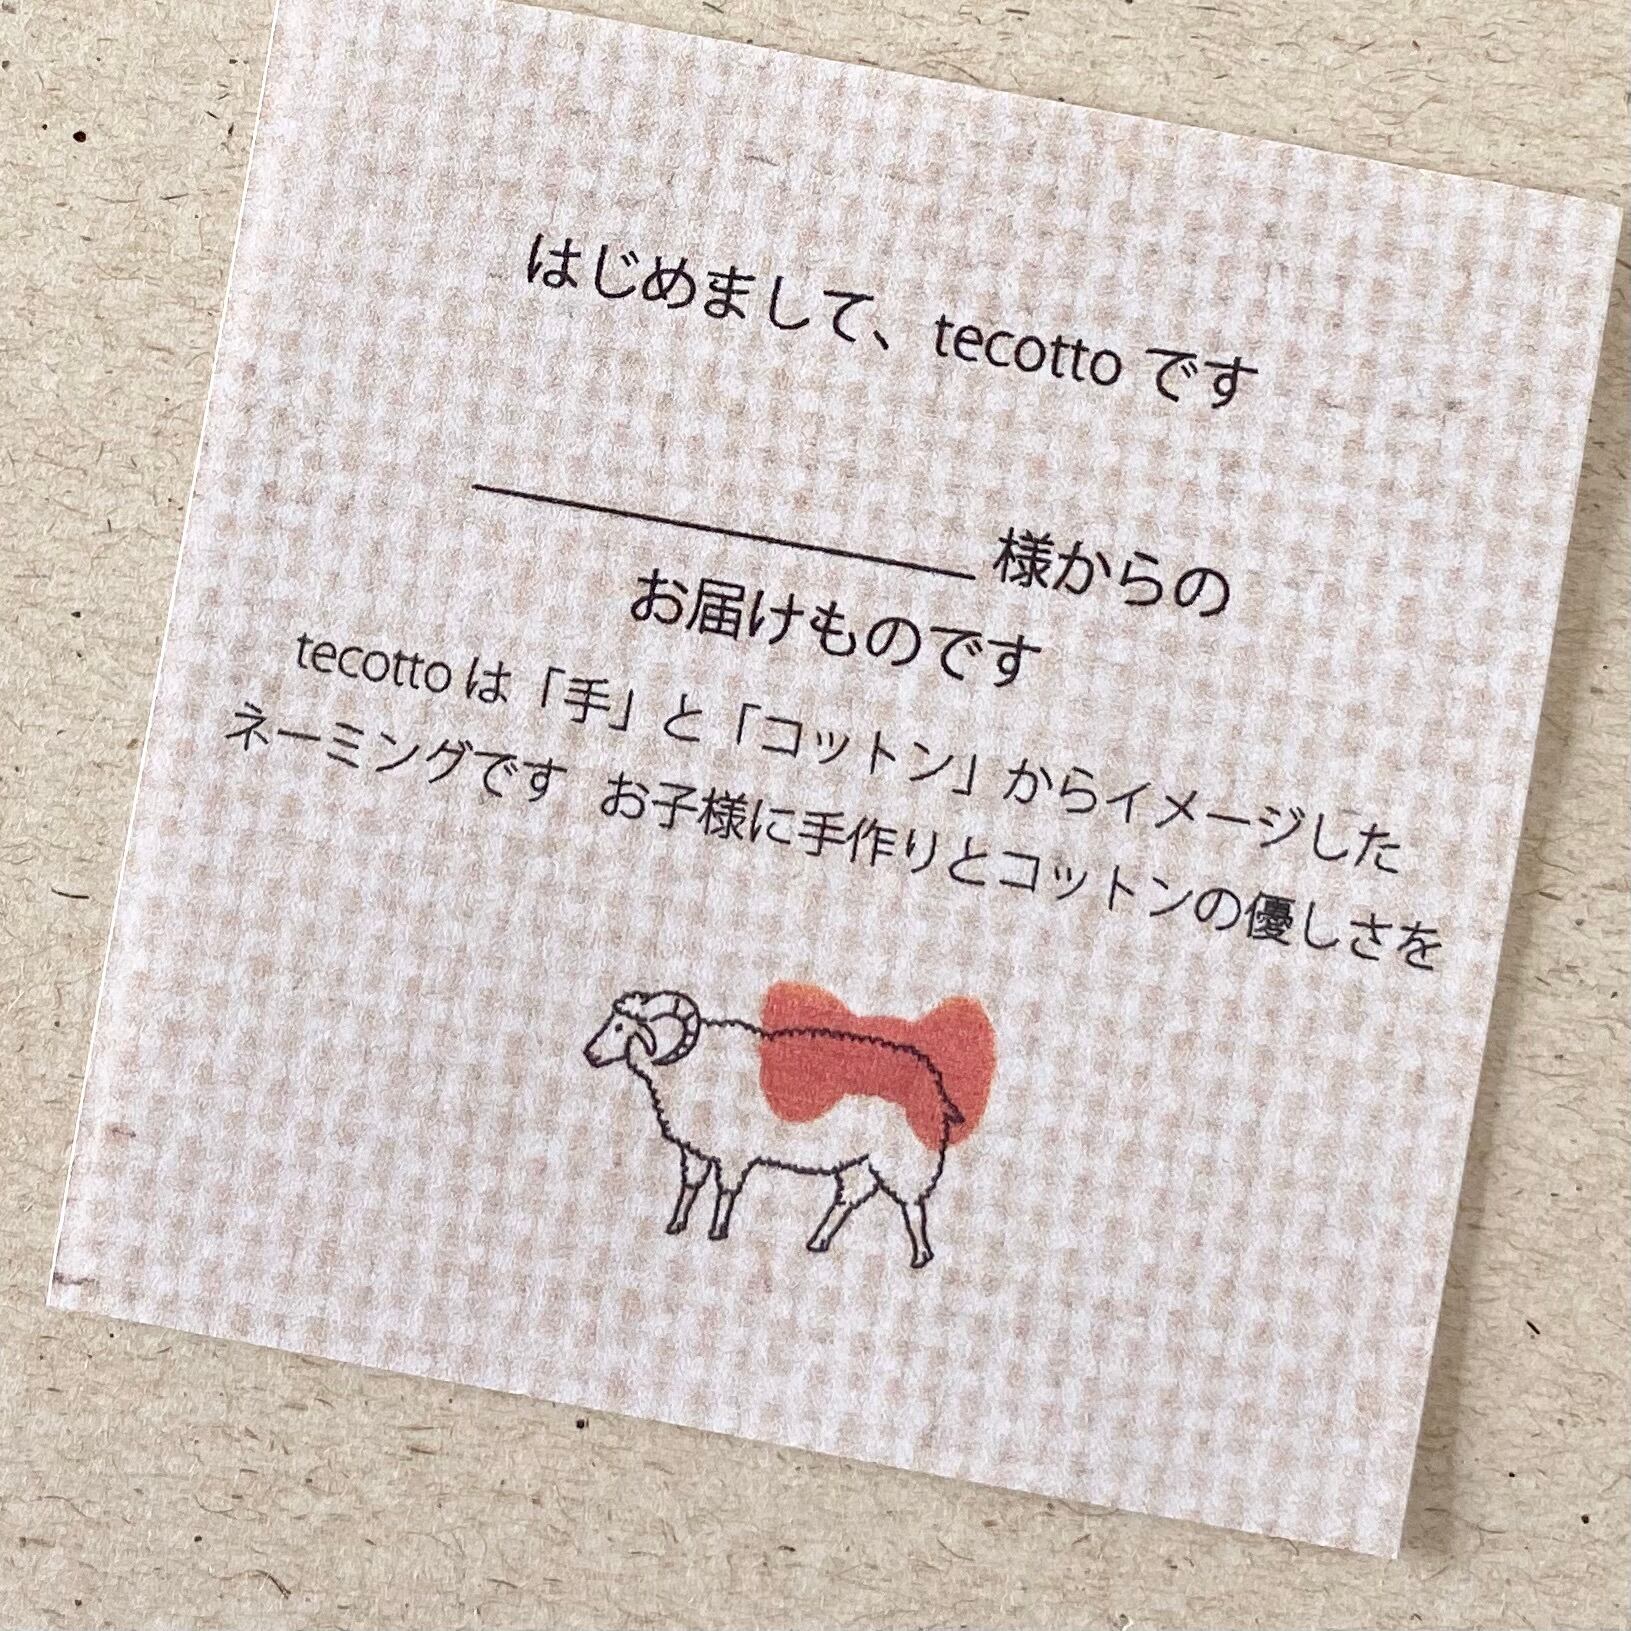 はじめまして、tecotto です
様からの
お届けものです
tecotto は「手」と「コットン」からイメージした
ネーミングです お子様に手作りとコットンの優しさを